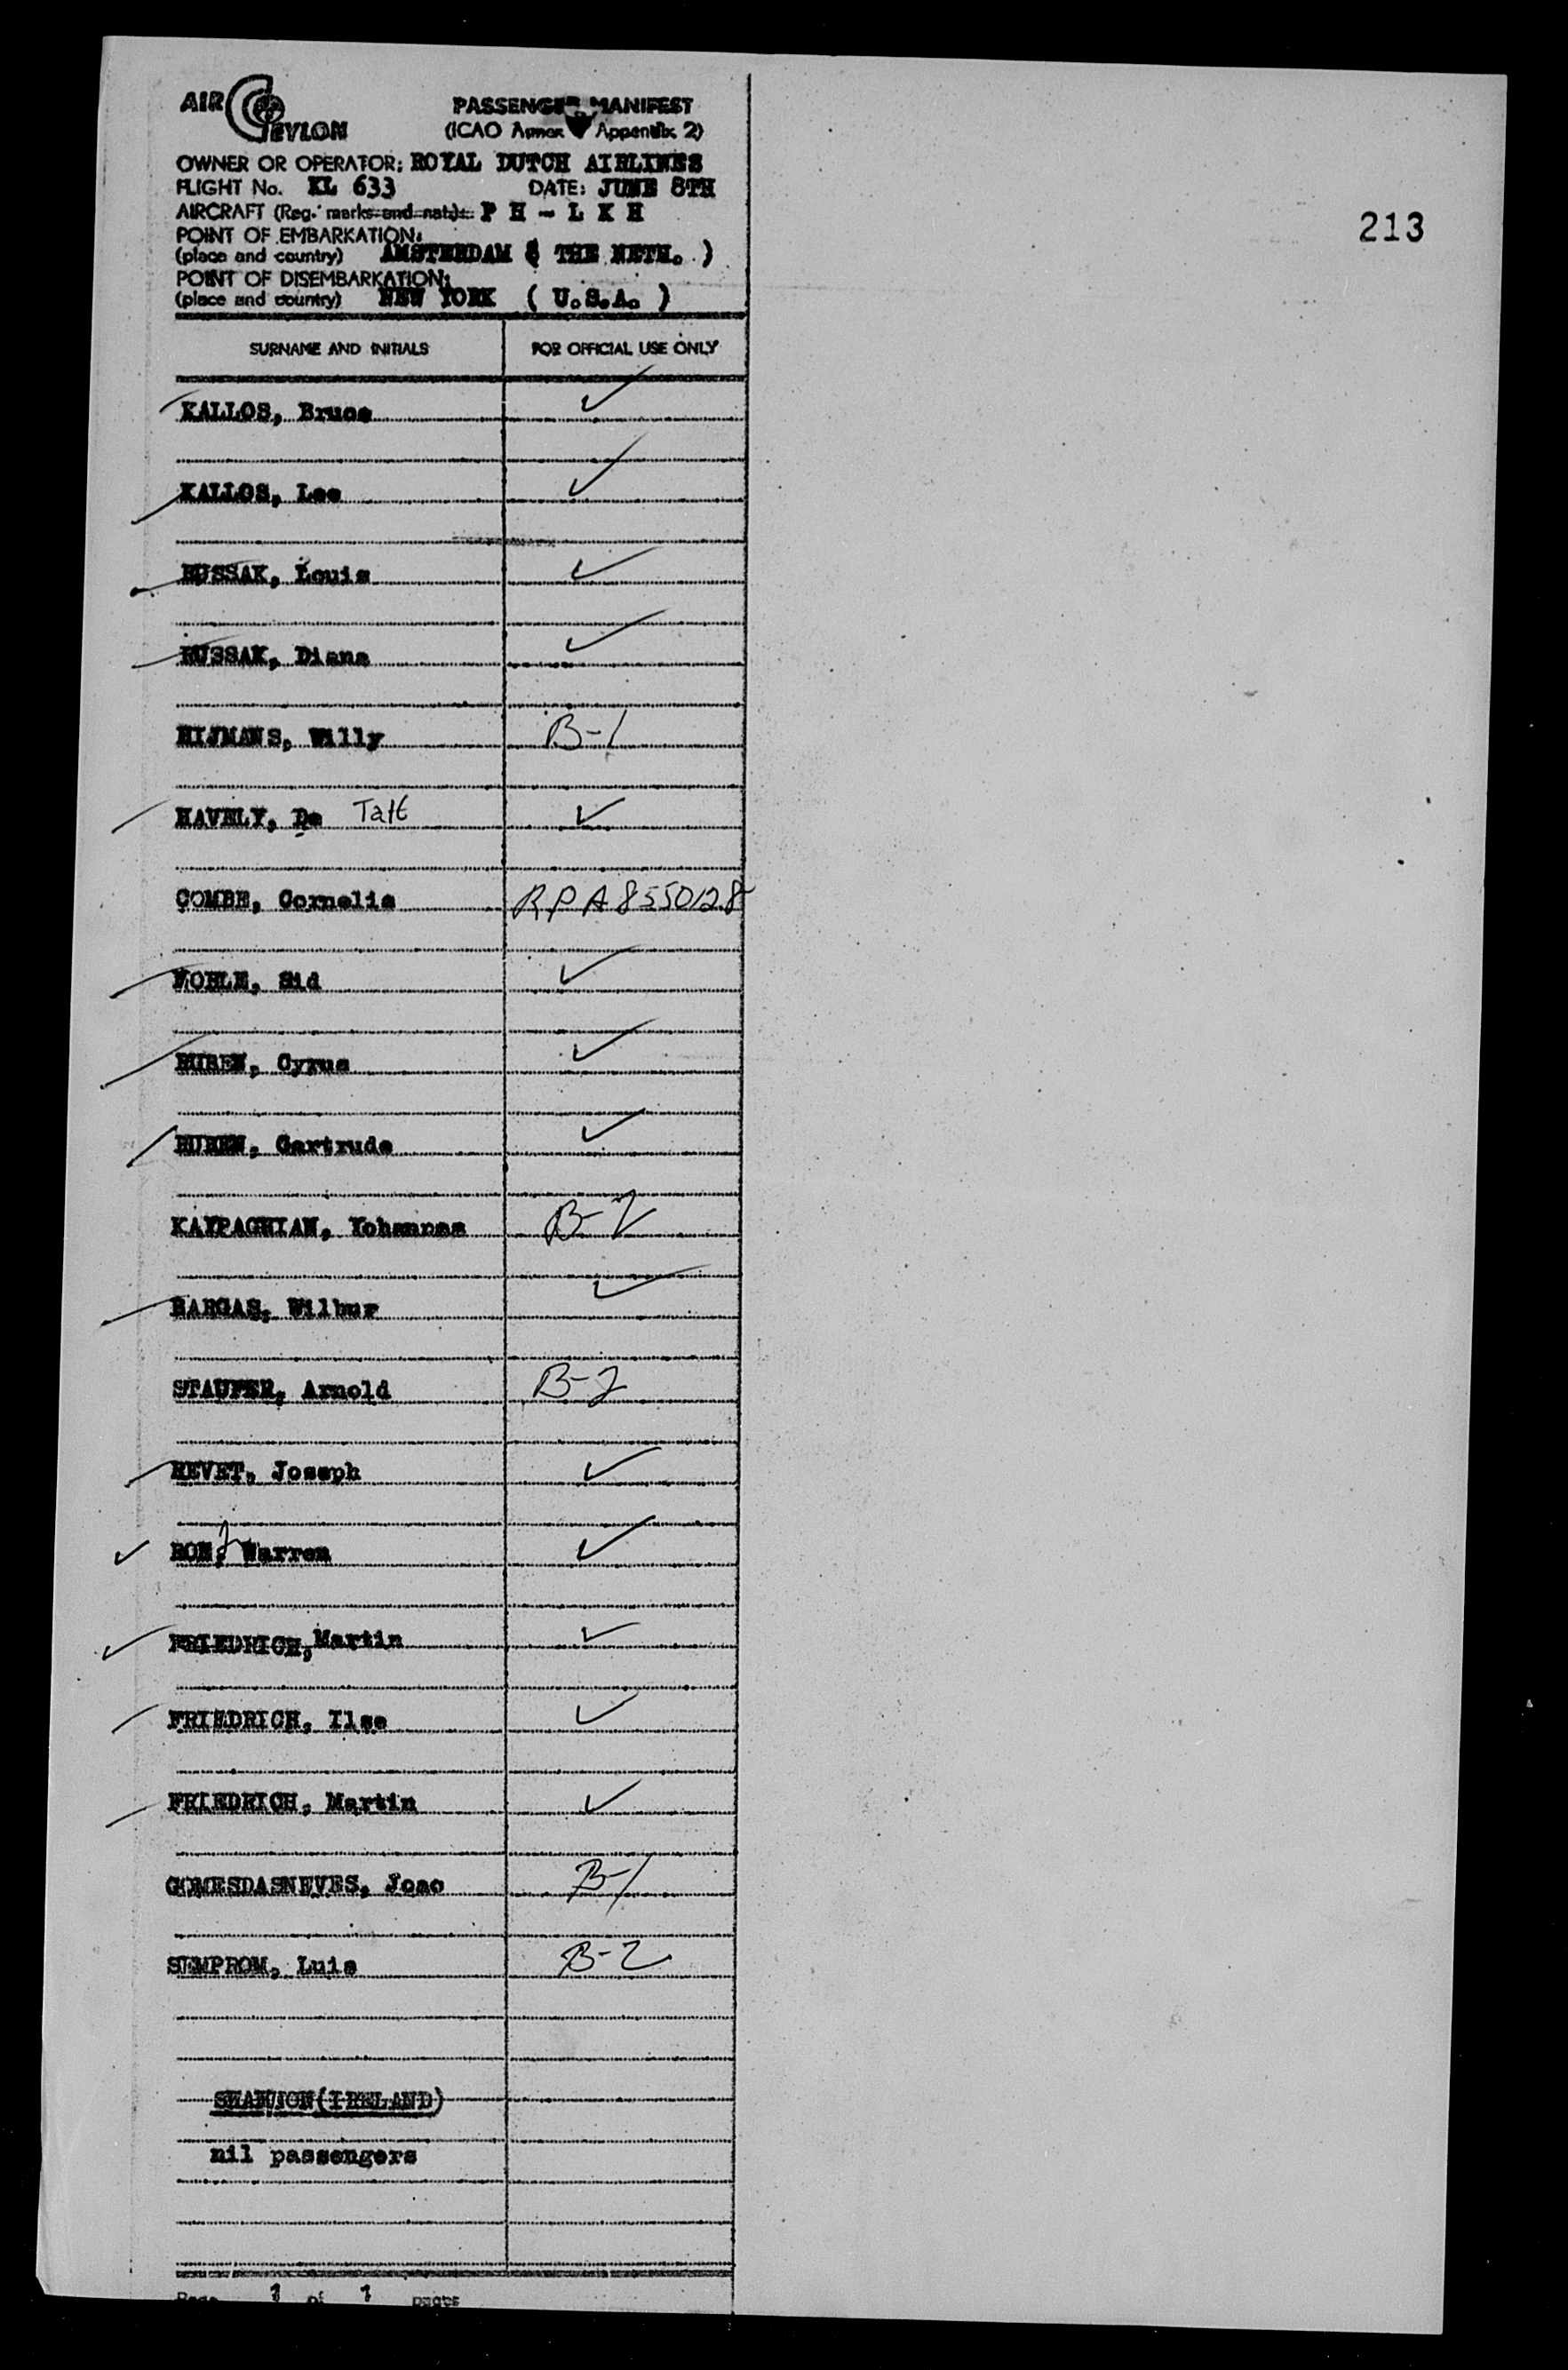 AIR CEYLON
PASSENGER MANIFEST
(ICAO Annex Appendix 2)
OWNER OR OPERATOR: ROYAL DUTCH AIRLINES
FLIGHT No. KL 633 DATE: JUNE 8TH
AIRCRAFT (Reg. marks and nat.): P H - L K H
POINT OF EMBARKATION:
(place and country) AMSTERDAM ( THE NETH. )
POINT OF DISEMBARKATION:
(place and country) NEW YORK ( U.S.A. )
213
SURNAME AND INITIALS FOR OFFICIAL USE ONLY
KALLOS, Bruce ✓
KALLOS, Lee ✓
RUSSAK, Louis ✓
RUSSAK, Diana ✓
HIJMANS, Willy B-1
HAVELY, De Tatt ✓
COMBE, Cornelia RPA8550128
NOBLE, Sid ✓
RUBEN, Cyrus ✓
RUBEN, Gertrude ✓
KAYPAGHIAN, Yohannes B-2
BARGAS, Wilbur ✓
STAUFER, Arnold B-2
REVET, Joseph ✓
Warren ✓
FRIEDRICH, Martin ✓
FRIEDRICH, Ilse ✓
FRIEDRICH, Martin ✓
GOMESDASNEVES, Joao B-1
SEMPROM, Luis B-2
SHANNON (IRELAND)
nil passengers
Page 1 of 1 pages